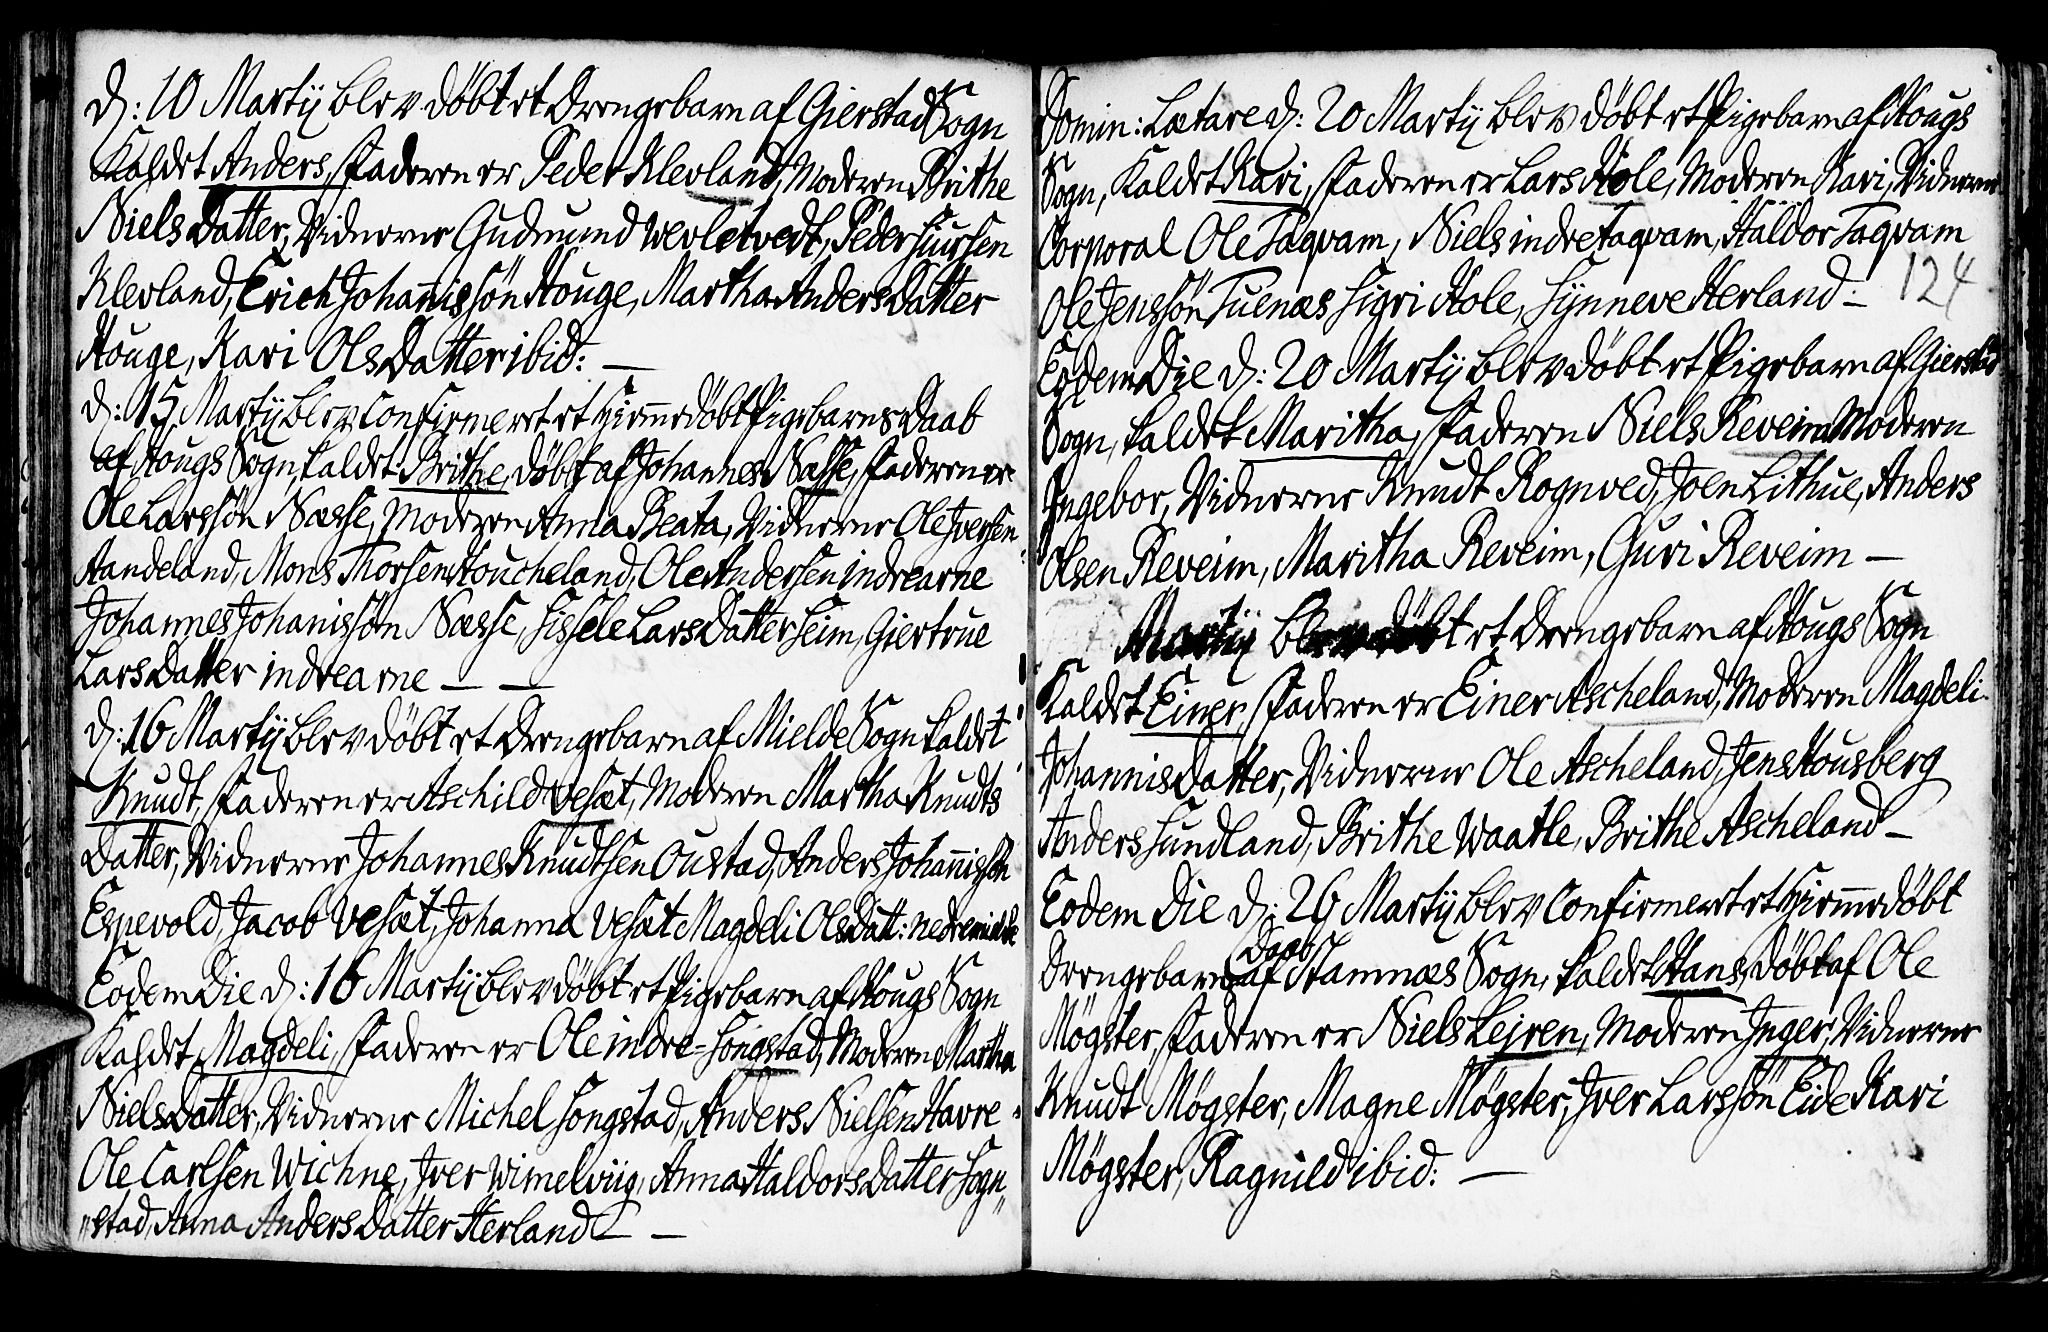 D: 10 Martij blev döbt et Drengebarn af Gierstad Sogn
Kaldet Anders, Faderen er Peder Klevland, Moderen Brithe
Niels Datter, Vidnerne Gudmund Wevletvedt, Peder Siursen
Klevland, Erich Johannissön Houge, Martha Anders Datter
Houge, Kari Ols Datter ibid: —
D: 15 Martij blev Confirmeret et Hiemmedöbt Pigebarns Daab
af Hougs Sogn, kaldet Brithe, döbt af Johannes Næsse, Faderen er
Ole Larssön Næsse, Moderen Anna Beata, Vidnerne Ole Iversen
Aandeland, Mons Thorsen Houcheland, Ole Andersen indre arne
Johannes Johanissön Næsse, Sissele Lars Datter Seim, Giertrue
Lars Datter indre arne — —
D: 16 Martij blev döbt et Drengebarn af Mielde Sogn kaldet
Knudt, Faderen er Aschild Vesæt, Moderen Martha Knudts
Datter, Vidnerne Johannes Knudtsen Oustad, Anders Johannissön
Espevold, Jacob Vesæt, Johanna Vesæt Magdeli Ols Datt: nedre mielde
Eodem Die d: 16 Martij blev döbt et Pigebarn af Hougs Sogn
Kaldet Magdeli, Faderen er Ole indre=Songstad, Moderen Martha
Niels Datter, Vidnerne Michel Songstad, Anders Nielsen Havre
Ole Carlsen Wichne, Iver Wimelviig, Anna Haldors Datter Sogn„
„stad, Anna Anders Datter Herland — —
Domin: Lætare d: 20 Martij blev döbt et Pigebarn af Hougs
Sogn, Kaldet Kari, Faderen er Lars Hole, Moderen Kari, Vidnerne
Corporal Ole Taqvam, Niels indre Taqvam, Haldor Taqvam
Ole Jenssön Tuenæs Sigri Hole, Synneve Herland —
124
Eodem Die d: 20 Martij blev döbt et Pigebarn af Gierstad
Sogn, kaldet Maritha, Faderen Niels Reveim Moderen
Ingebor, Vidnerne Knudt Rognved, Joen Lithue, Anders
Olsen Reveim, Maritha Reveim, Guri Reveim —
Martij blev döbt et Drengebarn af Hougs Sogn
Kaldet Einer, Faderen er Einer Ascheland, Moderen Magdeli
Johannis Datter, Vidnerne Ole Ascheland, Jens Housberg
Anders Sundland, Brithe Waatle, Brithe Ascheland —
Eodem Die d: 26 Martij blev Confirmeret et Hiemmedöbt
Drengebarns Daab af Stamnæs Sogn, kaldet Hans, döbt af Ole
Mögster, Faderen er Niels Lejren, Moderen Inger, Vidnerne
Knudt Mögster, Magne Mögster, Iver Larssön Eide Kari
Mögster, Ragnild ibid: —